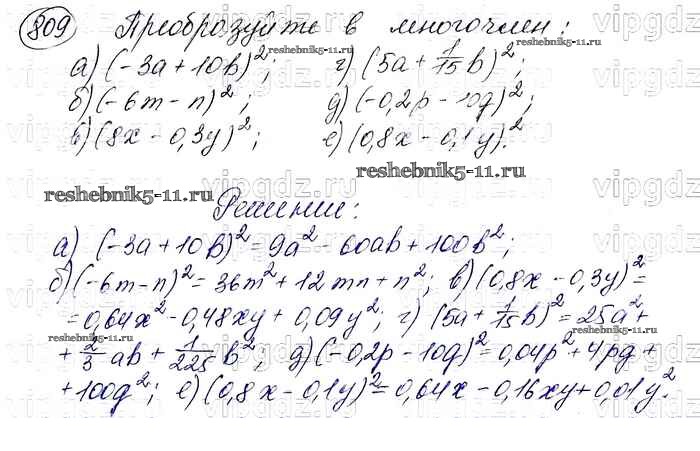 809 Преобразуйте в многочлен:
reshebnik5-11.ru
а) (-3a + 10b)²; г) (5a + 1/15 b)²;
б) (-6m - n)²; д) (-0,2p - 10q)²;
в) (8x - 0,3y)²; е) (0,8x - 0,1y)².
reshebnik5-11.ru
reshebnik5-11.ru
Решение:
а) (-3a + 10b)² = 9a² - 60ab + 100b²;
б) (-6m - n)² = 36m² + 12mn + n²; в) (0,8x - 0,3y)² =
= 0,64x² - 0,48xy + 0,09y²; г) (5a + 1/15 b)² = 25a² +
reshebnik5-11.ru
reshebnik5-11.ru
+ 2/3 ab + 1/225 b²; д) (-0,2p - 10q)² = 0,04p² + 4pq +
+ 100q²; е) (0,8x - 0,1y)² = 0,64x - 0,16xy + 0,01y².